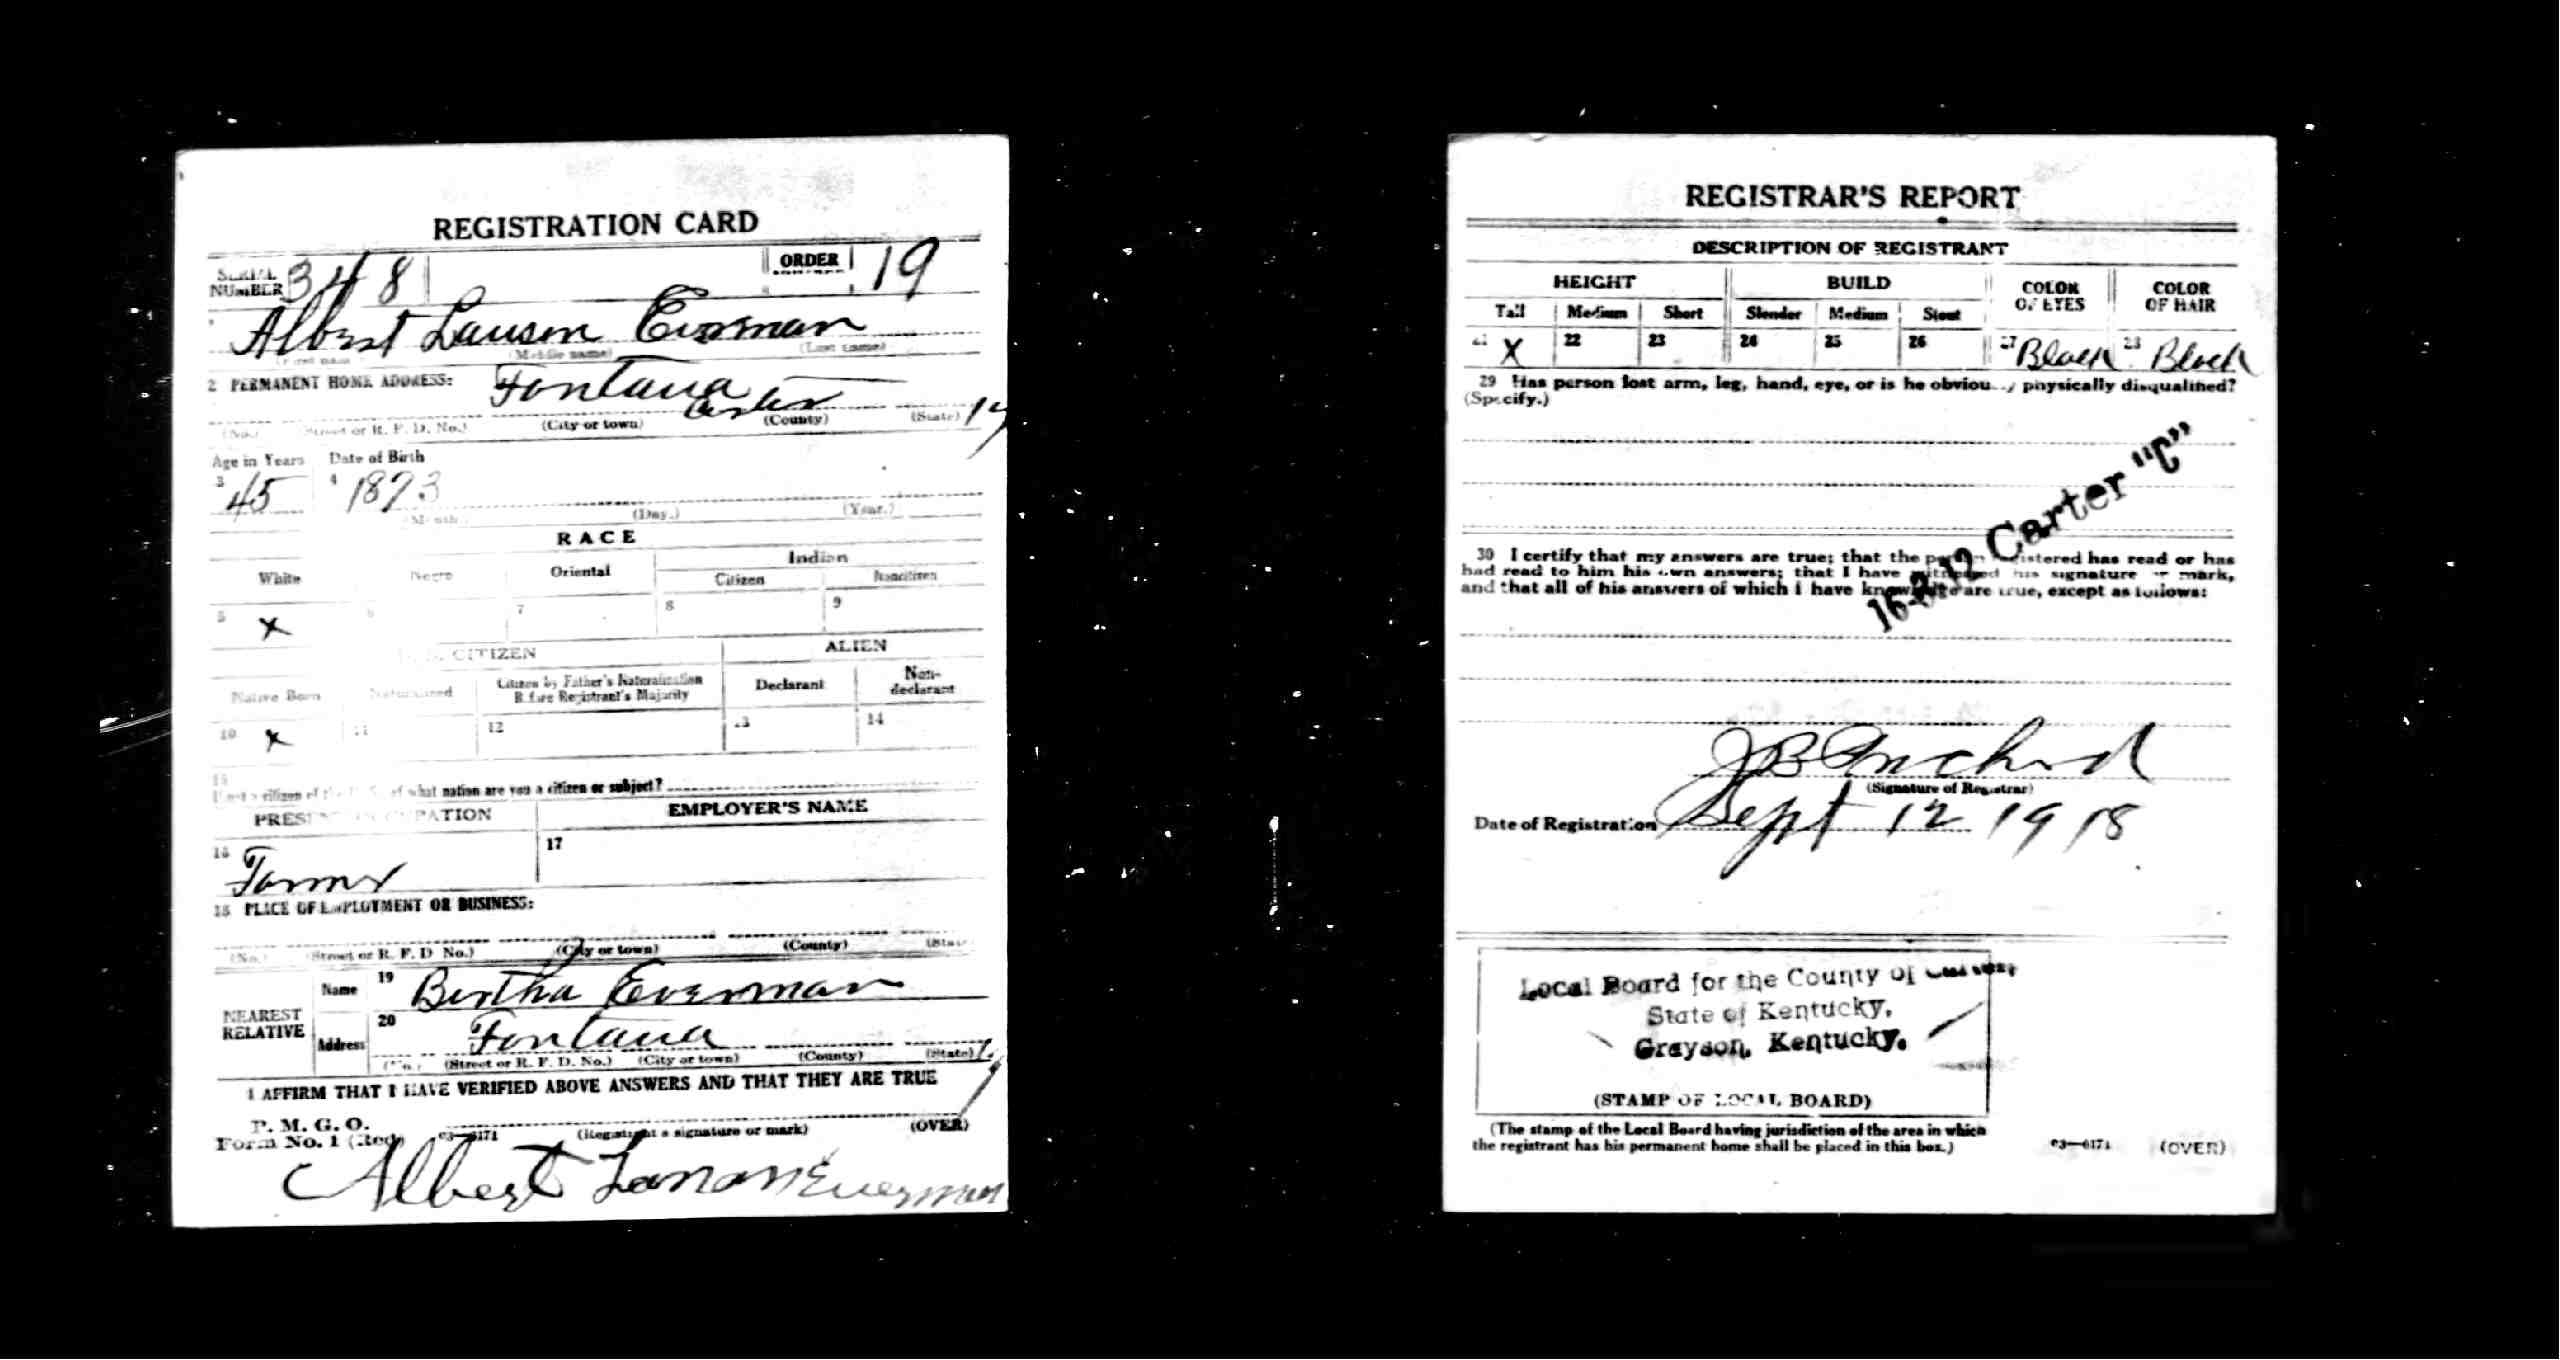 REGISTRATION CARD
SERIAL NUMBER 348 ORDER NUMBER 19
1 Albert Lauson Everman
(First name) (Middle name) (Last name)
2 PERMANENT HOME ADDRESS: Fontana Carter
(No.) (Street or R. F. D. No.) (City or town) (County) (State)
Age in Years Date of Birth
3 45 4 1873
(Month.) (Day.) (Year.)
RACE
White Negro Oriental Indian
Citizen Noncitizen
5 X 6 7 8 9
U. S. CITIZEN ALIEN
Native Born Naturalized Citizen by Father's Naturalization Before Registrant's Majority Declarant Non-declarant
10 X 11 12 13 14
15
If not a citizen of the U. S., of what nation are you a citizen or subject?
PRESENT OCCUPATION EMPLOYER'S NAME
16 Farmer 17
18 PLACE OF EMPLOYMENT OR BUSINESS:
(No.) (Street or R. F. D. No.) (City or town) (County) (State)
NEAREST RELATIVE Name 19 Bertha Everman
Address 20 Fontana
(No.) (Street or R. F. D. No.) (City or town) (County) (State)
I AFFIRM THAT I HAVE VERIFIED ABOVE ANSWERS AND THAT THEY ARE TRUE
P. M. G. O.
Form No. 1 (Red) 03—6171 (Registrant's signature or mark) (OVER)
Albert Lanson Everman
REGISTRAR'S REPORT
DESCRIPTION OF REGISTRANT
HEIGHT BUILD COLOR OF EYES COLOR OF HAIR
Tall Medium Short Slender Medium Stout
21 X 22 23 24 25 26 27 Black 28 Black
29 Has person lost arm, leg, hand, eye, or is he obviously physically disqualified?
(Specify.)
16-3-12 Carter "C"
30 I certify that my answers are true; that the person registered has read or has
had read to him his own answers; that I have witnessed his signature or mark,
and that all of his answers of which I have knowledge are true, except as follows:
J B
(Signature of Registrar)
Date of Registration Sept 12 1918
Local Board for the County of Carter
State of Kentucky,
Grayson, Kentucky.
(STAMP OF LOCAL BOARD)
(The stamp of the Local Board having jurisdiction of the area in which
the registrant has his permanent home shall be placed in this box.)
03—6171 (OVER)